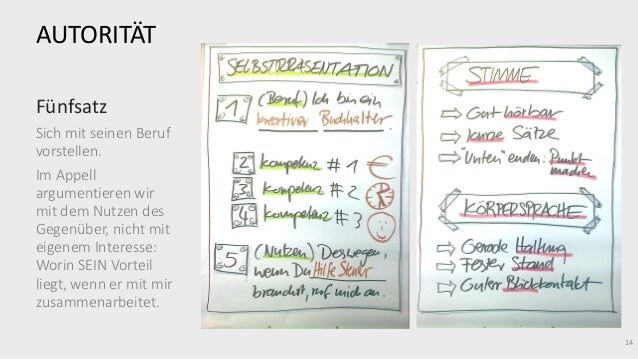 AUTORITÄT
Fünfsatz
Sich mit seinen Beruf
vorstellen.
Im Appell
argumentieren wir
mit dem Nutzen des
Gegenüber, nicht mit
eigenem Interesse:
Worin SEIN Vorteil
liegt, wenn er mit mir
zusammenarbeitet.
SELBSTPRÄSENTATION
1 (Beruf) Ich bin ein
kreativer Buchhalter.
2 Kompetenz # 1 €
3 Kompetenz # 2
4 Kompetenz # 3
5 (Nutzen) Deswegen,
wenn Du Hilfe Steuer
brauchst, ruf mich an.
STIMME
Gut hörbar
Kurze Sätze
"Unten" enden: Punkt
machen
KÖRPERSPRACHE
Gerade Haltung
Fester Stand
Guter Blickkontakt
14